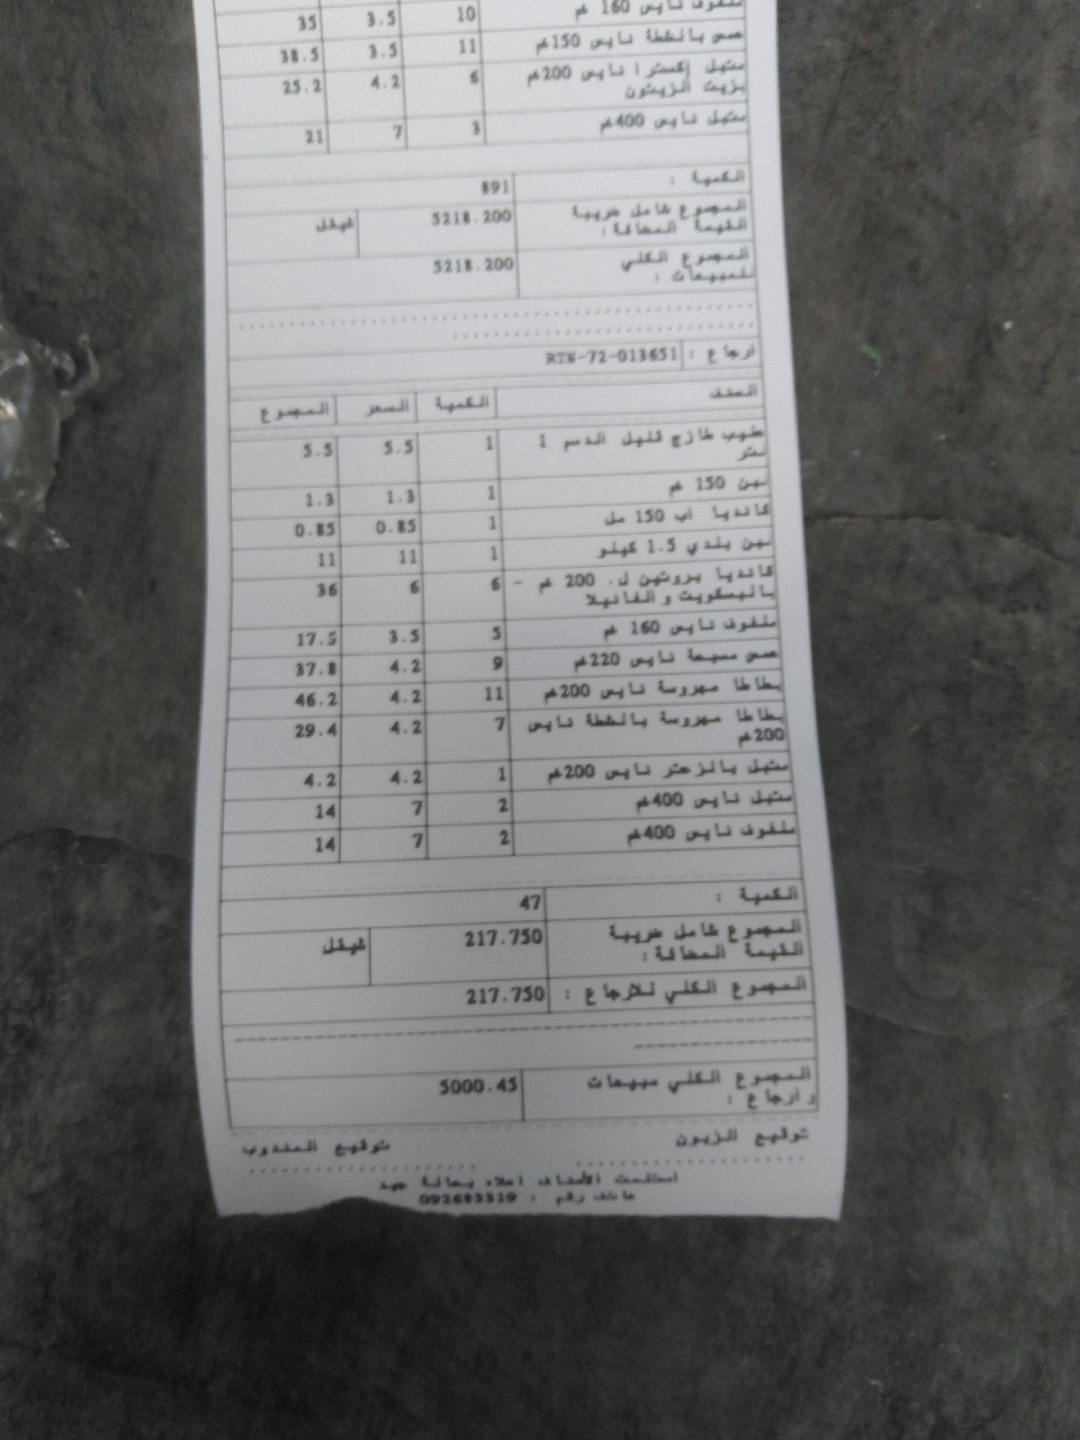 ملفوف نايس 160 غم 10 3.5 35
حمص بالشطة نايس 150غم 11 3.5 38.5
متبل إكسترا نايس 200غم 6 4.2 25.2
بزيت الزيتون
متبل نايس 400غم 3 7 21
الكمية : 891
المجموع شامل ضريبة 5218.200 شيقل
القيمة المضافة :
المجموع الكلي 5218.200
للمبيعات :
ارجاع : RTN-72-013651
الصنف الكمية السعر المجموع
حليب طازج قليل الدسم 1 1 5.5 5.5
لتر
لبن 150 غم 1 1.3 1.3
كانديا أب 150 مل 1 0.85 0.85
لبن بلدي 1.5 كيلو 1 11 11
كانديا بروتين ل. 200 غم - 6 6 36
بالبسكويت و الفانيلا
ملفوف نايس 160 غم 5 3.5 17.5
حمص مسبحة نايس 220غم 9 4.2 37.8
بطاطا مهروسة نايس 200غم 11 4.2 46.2
بطاطا مهروسة بالشطة نايس 7 4.2 29.4
200غم
متبل بالزعتر نايس 200غم 1 4.2 4.2
متبل نايس 400غم 2 7 14
ملفوف نايس 400غم 2 7 14
الكمية : 47
المجموع شامل ضريبة 217.750 شيقل
القيمة المضافة :
المجموع الكلي للارجاع : 217.750
المجموع الكلي مبيعات 5000.45
و ارجاع :
توقيع الزبون توقيع المندوب
استلمت الأصناف اعلاه بحالة جيد
هاتف رقم : 092683319